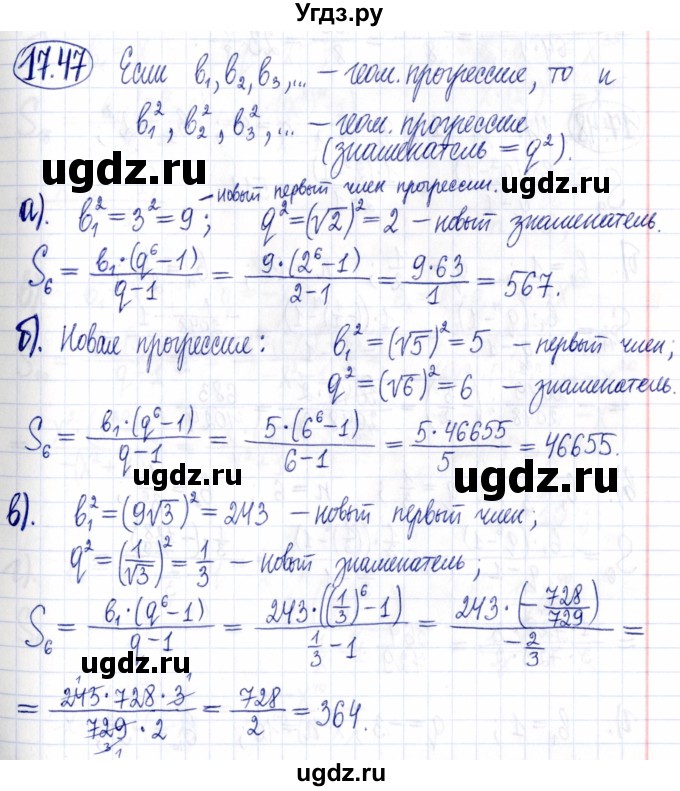 Угдз.ру
17.47 Если b₁, b₂, b₃, ... – геом. прогрессия, то и
b₁², b₂², b₃², ... – геом. прогрессия
(знаменатель = q²).
ugdz.ru ugdz.ru
– новый первый член прогрессии.
а). b₁² = 3² = 9; q² = (√2)² = 2 – новый знаменатель.
S₆ = b₁·(q⁶–1)/(q–1) = 9·(2⁶–1)/(2–1) = 9·63/1 = 567.
ugdz.ru
б). Новая прогрессия: b₁² = (√5)² = 5 – первый член;
q² = (√6)² = 6 – знаменатель.
S₆ = b₁·(q⁶–1)/(q–1) = 5·(6⁶–1)/(6–1) = 5·46655/5 = 46655.
ugdz.ru ugdz.ru
в). b₁² = (9√3)² = 243 – новый первый член;
q² = (1/√3)² = 1/3 – новый знаменатель;
ugdz.ru
S₆ = b₁·(q⁶–1)/(q–1) = 243·((1/3)⁶–1)/(1/3–1) = 243·(–728/729)/(–2/3) =
ugdz.ru ugdz.ru
= 243·728·3/(729·2) = 728/2 = 364.
ugdz.ru